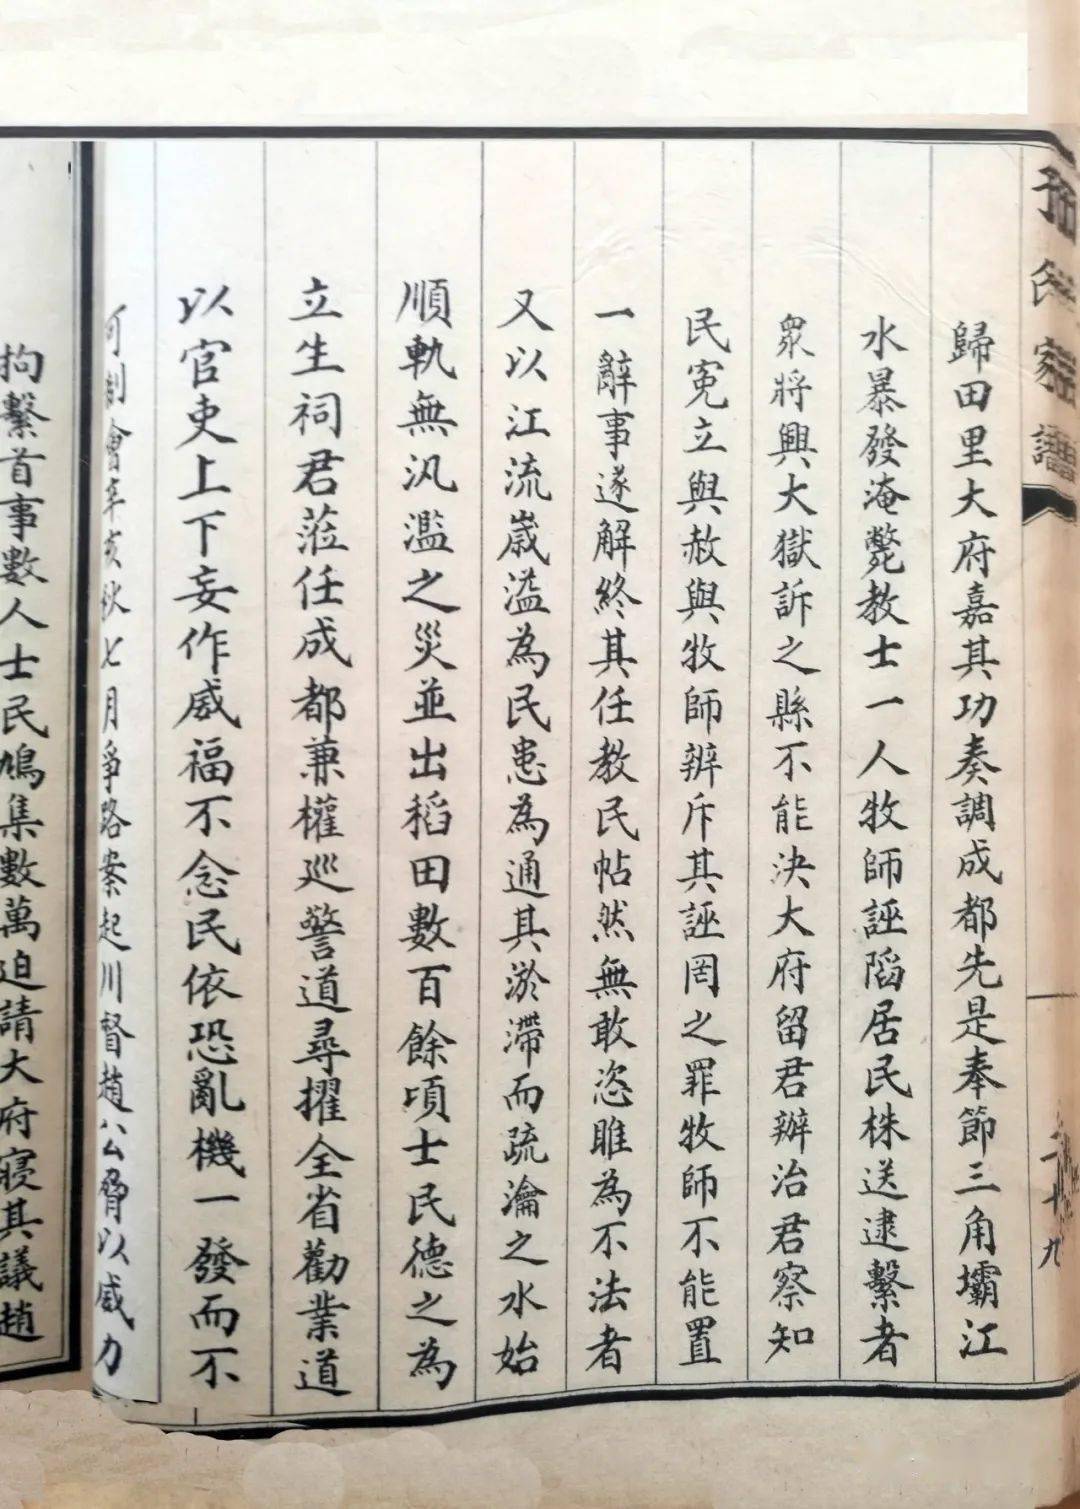 氏家譜
二十九
歸田里大府嘉其功奏調成都先是奉節三角壩江
水暴發淹斃教士一人牧師誣陷居民株送逮繫者
眾將興大獄訴之縣不能決大府留君辦治君察知
民冤立與赦與牧師辨斥其誣罔之罪牧師不能置
一辭事遂解終其任教民帖然無敢恣睢為不法者
又以江流歲溢為民患為通其淤滯而疏瀹之水始
順軌無汎濫之災並出稻田數百餘頃士民德之為
立生祠君蒞任成都兼權巡警道尋擢全省勸業道
以官吏上下妄作威福不念民依恐亂機一發而不
可制會辛亥秋七月爭路案起川督趙公脅以威力
拘繫首事數人士民鳩集數萬迫請大府寢其議趙